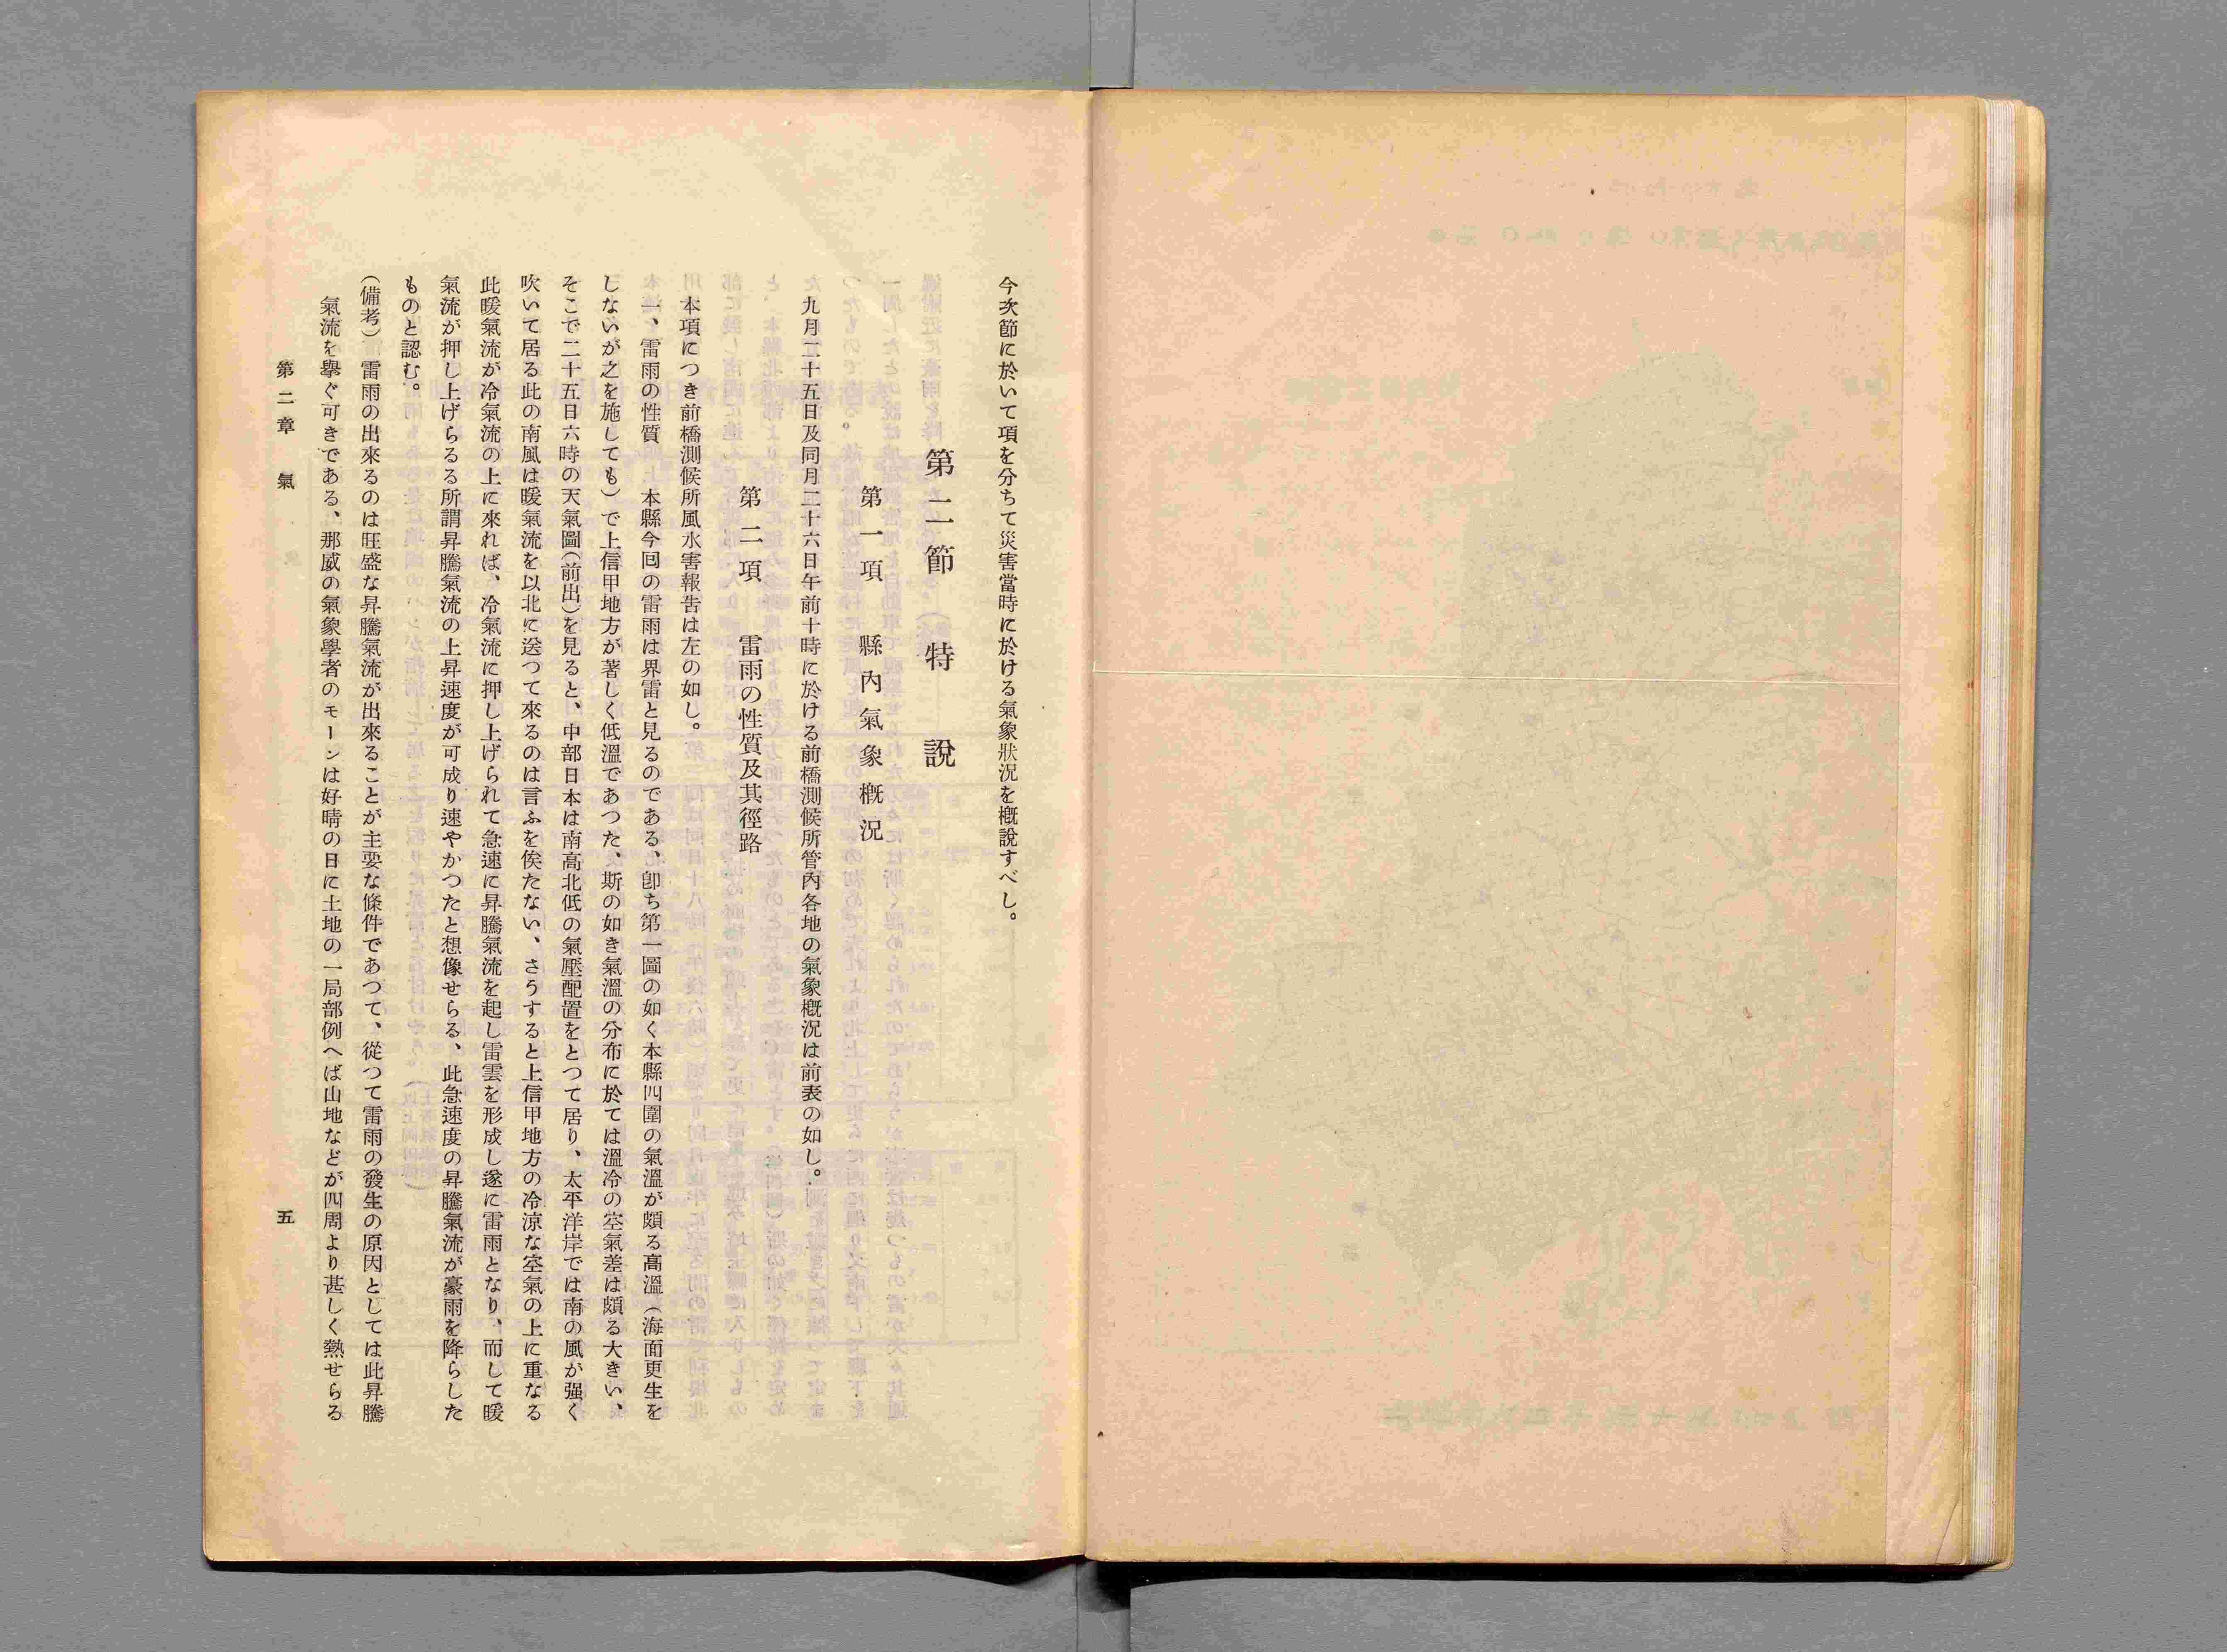 今次節に於いて項を分ちて災害當時に於ける氣象狀況を槪說すべし。
第二節 特說
第一項 縣內氣象槪況
九月二十五日及同月二十六日午前十時に於ける前橋測候所管內各地の氣象槪況は前表の如し。
第二項 雷雨の性質及其徑路
本項につき前橋測候所風水害報告は左の如し。
一、雷雨の性質 本縣今回の雷雨は界雷と見るのである、卽ち第一圖の如く本縣四圍の氣溫が頗る高溫(海面更生を
しないが之を施しても)で上信甲地方が著しく低溫であつた、斯の如き氣溫の分布に於ては溫冷の空氣差は頗る大きい、
そこで二十五日六時の天氣圖(前出)を見ると、中部日本は南高北低の氣壓配置をとつて居り、太平洋岸では南の風が强く
吹いて居る此の南風は暖氣流を以北に送つて來るのは言ふを俟たない、さうすると上信甲地方の冷凉な空氣の上に重なる
此暖氣流が冷氣流の上に來れば、冷氣流に押し上げられて急速に昇騰氣流を起し雷雲を形成し遂に雷雨となり、而して暖
氣流が押し上げらるる所謂昇騰氣流の上昇速度が可成り速やかつたと想像せらる、此急速度の昇騰氣流が豪雨を降らした
ものと認む。
(備考) 雷雨の出來るのは旺盛な昇騰氣流が出來ることが主要な條件であつて、從つて雷雨の發生の原因としては此昇騰
氣流を擧ぐ可きである、那威の氣象學者のモーンは好晴の日に土地の一局部例へば山地などが四周より甚しく熱せらる
第二章 氣
五